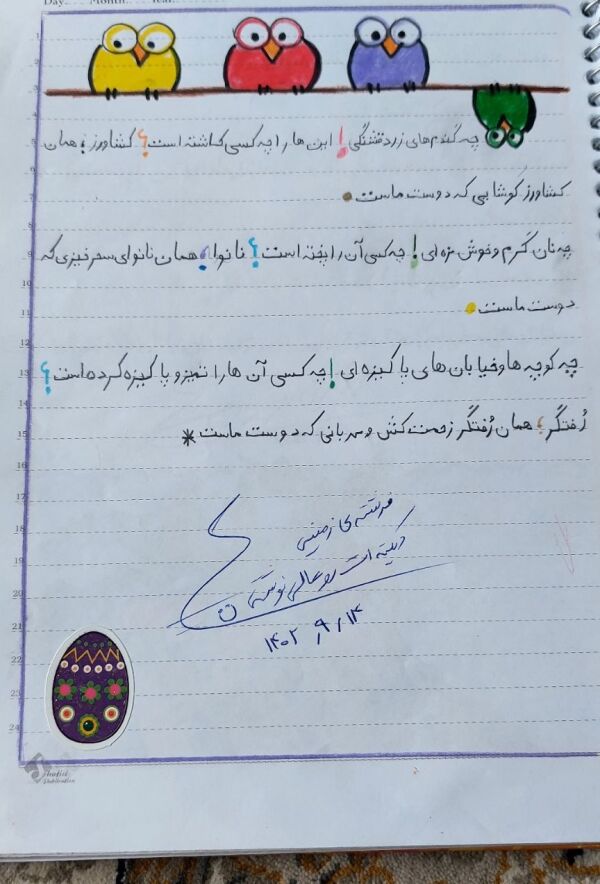 Day... Month... Year...
چه گندم‌های زرد قشنگی! این ها را چه کسی کاشته است؟ کشاورز؛ همان
کشاورز کوشا یی که دوست ماست.
چه نان گرم و خوش مزه ای! چه کسی آن را پخته است؟ نانوا؛ همان نانوای سحرخیزی که
دوست ماست.
چه کوچه ها و خیابان های پاکیزه ای! چه کسی آن ها را تمیز و پاکیزه کرده است؟
رُفتگر؛ همان رُفتگر زحمت کش و مهربانی که دوست ماست*
فرشته ی زمینی
دیکته ات رو عالی نوشتی
۱۴۰۲/۹/۱۴